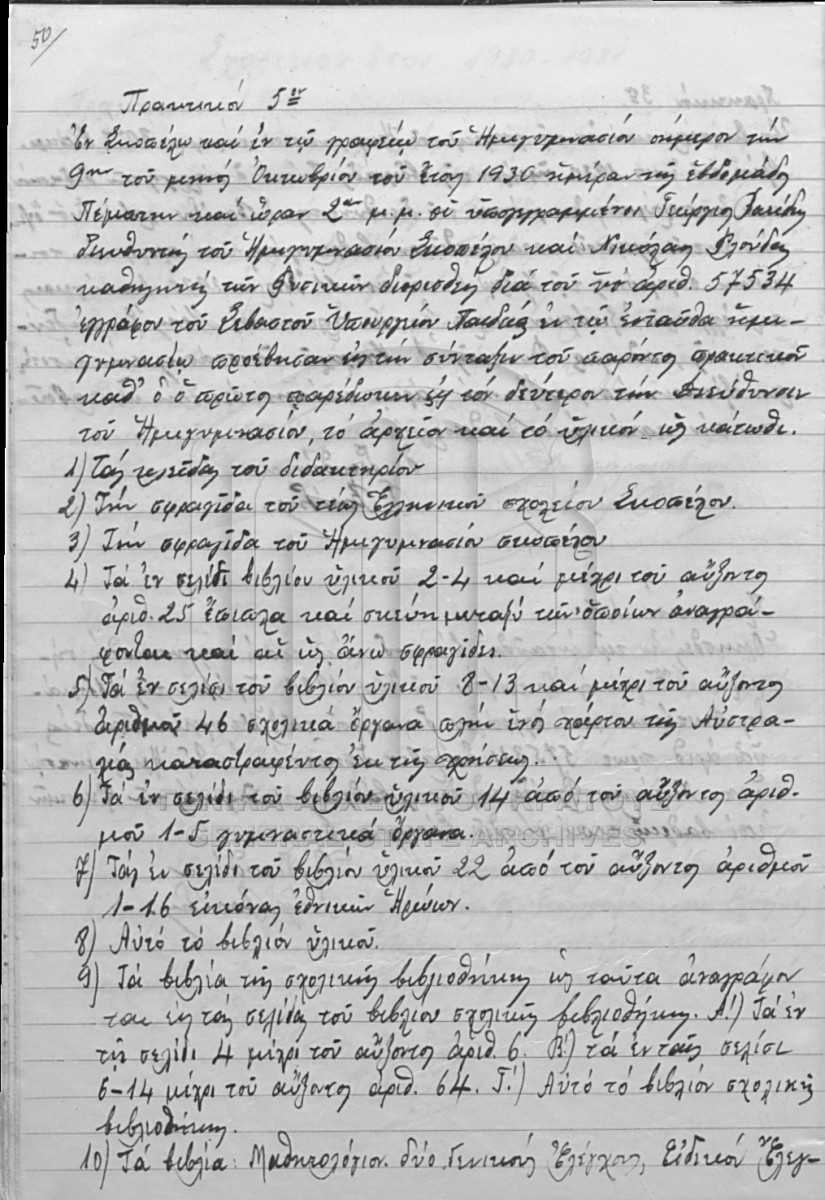 50/
Πρακτικόν 5ον
Ἐν Σκοπέλῳ καί ἐν τῷ γραφείῳ τοῦ Ἡμιγυμνασίου σήμερον τήν
9ην τοῦ μηνός Ὀκτωβρίου τοῦ ἔτους 1930 ἡμέραν τῆς ἑβδομάδος
Πέμπτην καί ὥραν 2αν μ.μ. οἱ ὑπογεγραμμένοι Γεώργιος
διευθυντής τοῦ Ἡμιγυμνασίου Σκοπέλου καί Νικόλαος Βλούδος
καθηγητής τῶν Φυσικῶν διορισθείς διά τοῦ ὑπ' ἀριθ. 57534
ἐγγράφου τοῦ Σεβαστοῦ Ὑπουργείου Παιδείας ἐν τῷ ἐνταῦθα ἡμι-
γυμνασίῳ προέβησαν εἰς τήν σύνταξιν τοῦ παρόντος πρακτικοῦ
καθ' ὅ ὁ πρῶτος παρέδωκεν εἰς τόν δεύτερον τήν Διεύθυνσιν
τοῦ Ἡμιγυμνασίου, τό ἀρχεῖον καί τό ὑλικόν ὡς κάτωθι.
1) Τάς κλεῖδας τοῦ διδακτηρίου
2) Τήν σφραγῖδα τοῦ τέως Ἑλληνικοῦ σχολείου Σκοπέλου.
3) Τήν σφραγῖδα τοῦ Ἡμιγυμνασίου Σκοπέλου
4) Τά ἐν σελίδι βιβλίου ὑλικοῦ 2-4 καί μέχρι τοῦ αὔξοντος
ἀριθ. 25 ἔπιπλα καί σκεύη μεταξύ τῶν ὁποίων ἀναγρά-
φονται καί αἱ ὡς ἄνω σφραγίδες.
5) Τά ἐν σελίσι τοῦ βιβλίου ὑλικοῦ 8-13 καί μέχρι τοῦ αὔξοντος
ἀριθμοῦ 46 σχολικά ὄργανα πλήν ἑνός χάρτου τῆς Αὐστρα-
λίας καταστραφέντος ἐκ τῆς χρήσεως.
6) Τά ἐν σελίδι τοῦ βιβλίου ὑλικοῦ 14 ἀπό τοῦ αὔξοντος ἀριθ-
μοῦ 1-5 γυμναστικά ὄργανα.
7) Τάς ἐν σελίδι τοῦ βιβλίου ὑλικοῦ 22 ἀπό τοῦ αὔξοντος ἀριθμοῦ
1-16 εἰκόνας ἐθνικῶν Ἡρώων.
8) Αὐτό τό βιβλίον ὑλικοῦ.
9) Τά βιβλία τῆς σχολικῆς βιβλιοθήκης ὡς ταῦτα ἀναγράφον
ται εἰς τάς σελίδας τοῦ βιβλίου σχολικῆς βιβλιοθήκης. Α!) Τά ἐν
τῇ σελίδι 4 μέχρι τοῦ αὔξοντος ἀριθ. 6. Β!) τά ἐν ταῖς σελίσι
6-14 μέχρι τοῦ αὔξοντος ἀριθ. 64. Γ!) Αὐτό τό βιβλίον σχολικῆς
βιβλιοθήκης.
10) Τά βιβλία: Μαθητολόγιον. δύο Γενικούς Ἐλέγχους, Εἰδικόν Ἔλεγ-
GENERAL STATE ARCHIVES